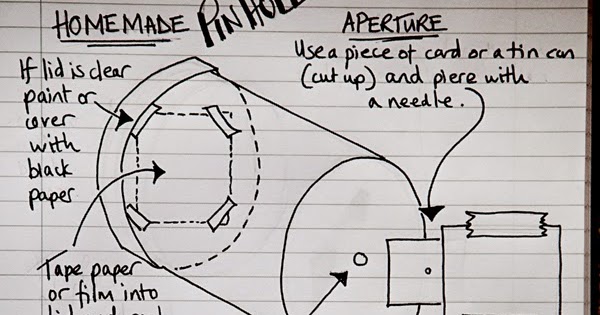 HOMEMADE PINHOLE
APERTURE
Use a piece of card or a tin can
(cut up) and piere with
a needle.
If lid is clear
paint or
cover
with
black
paper
Tape paper
or film into